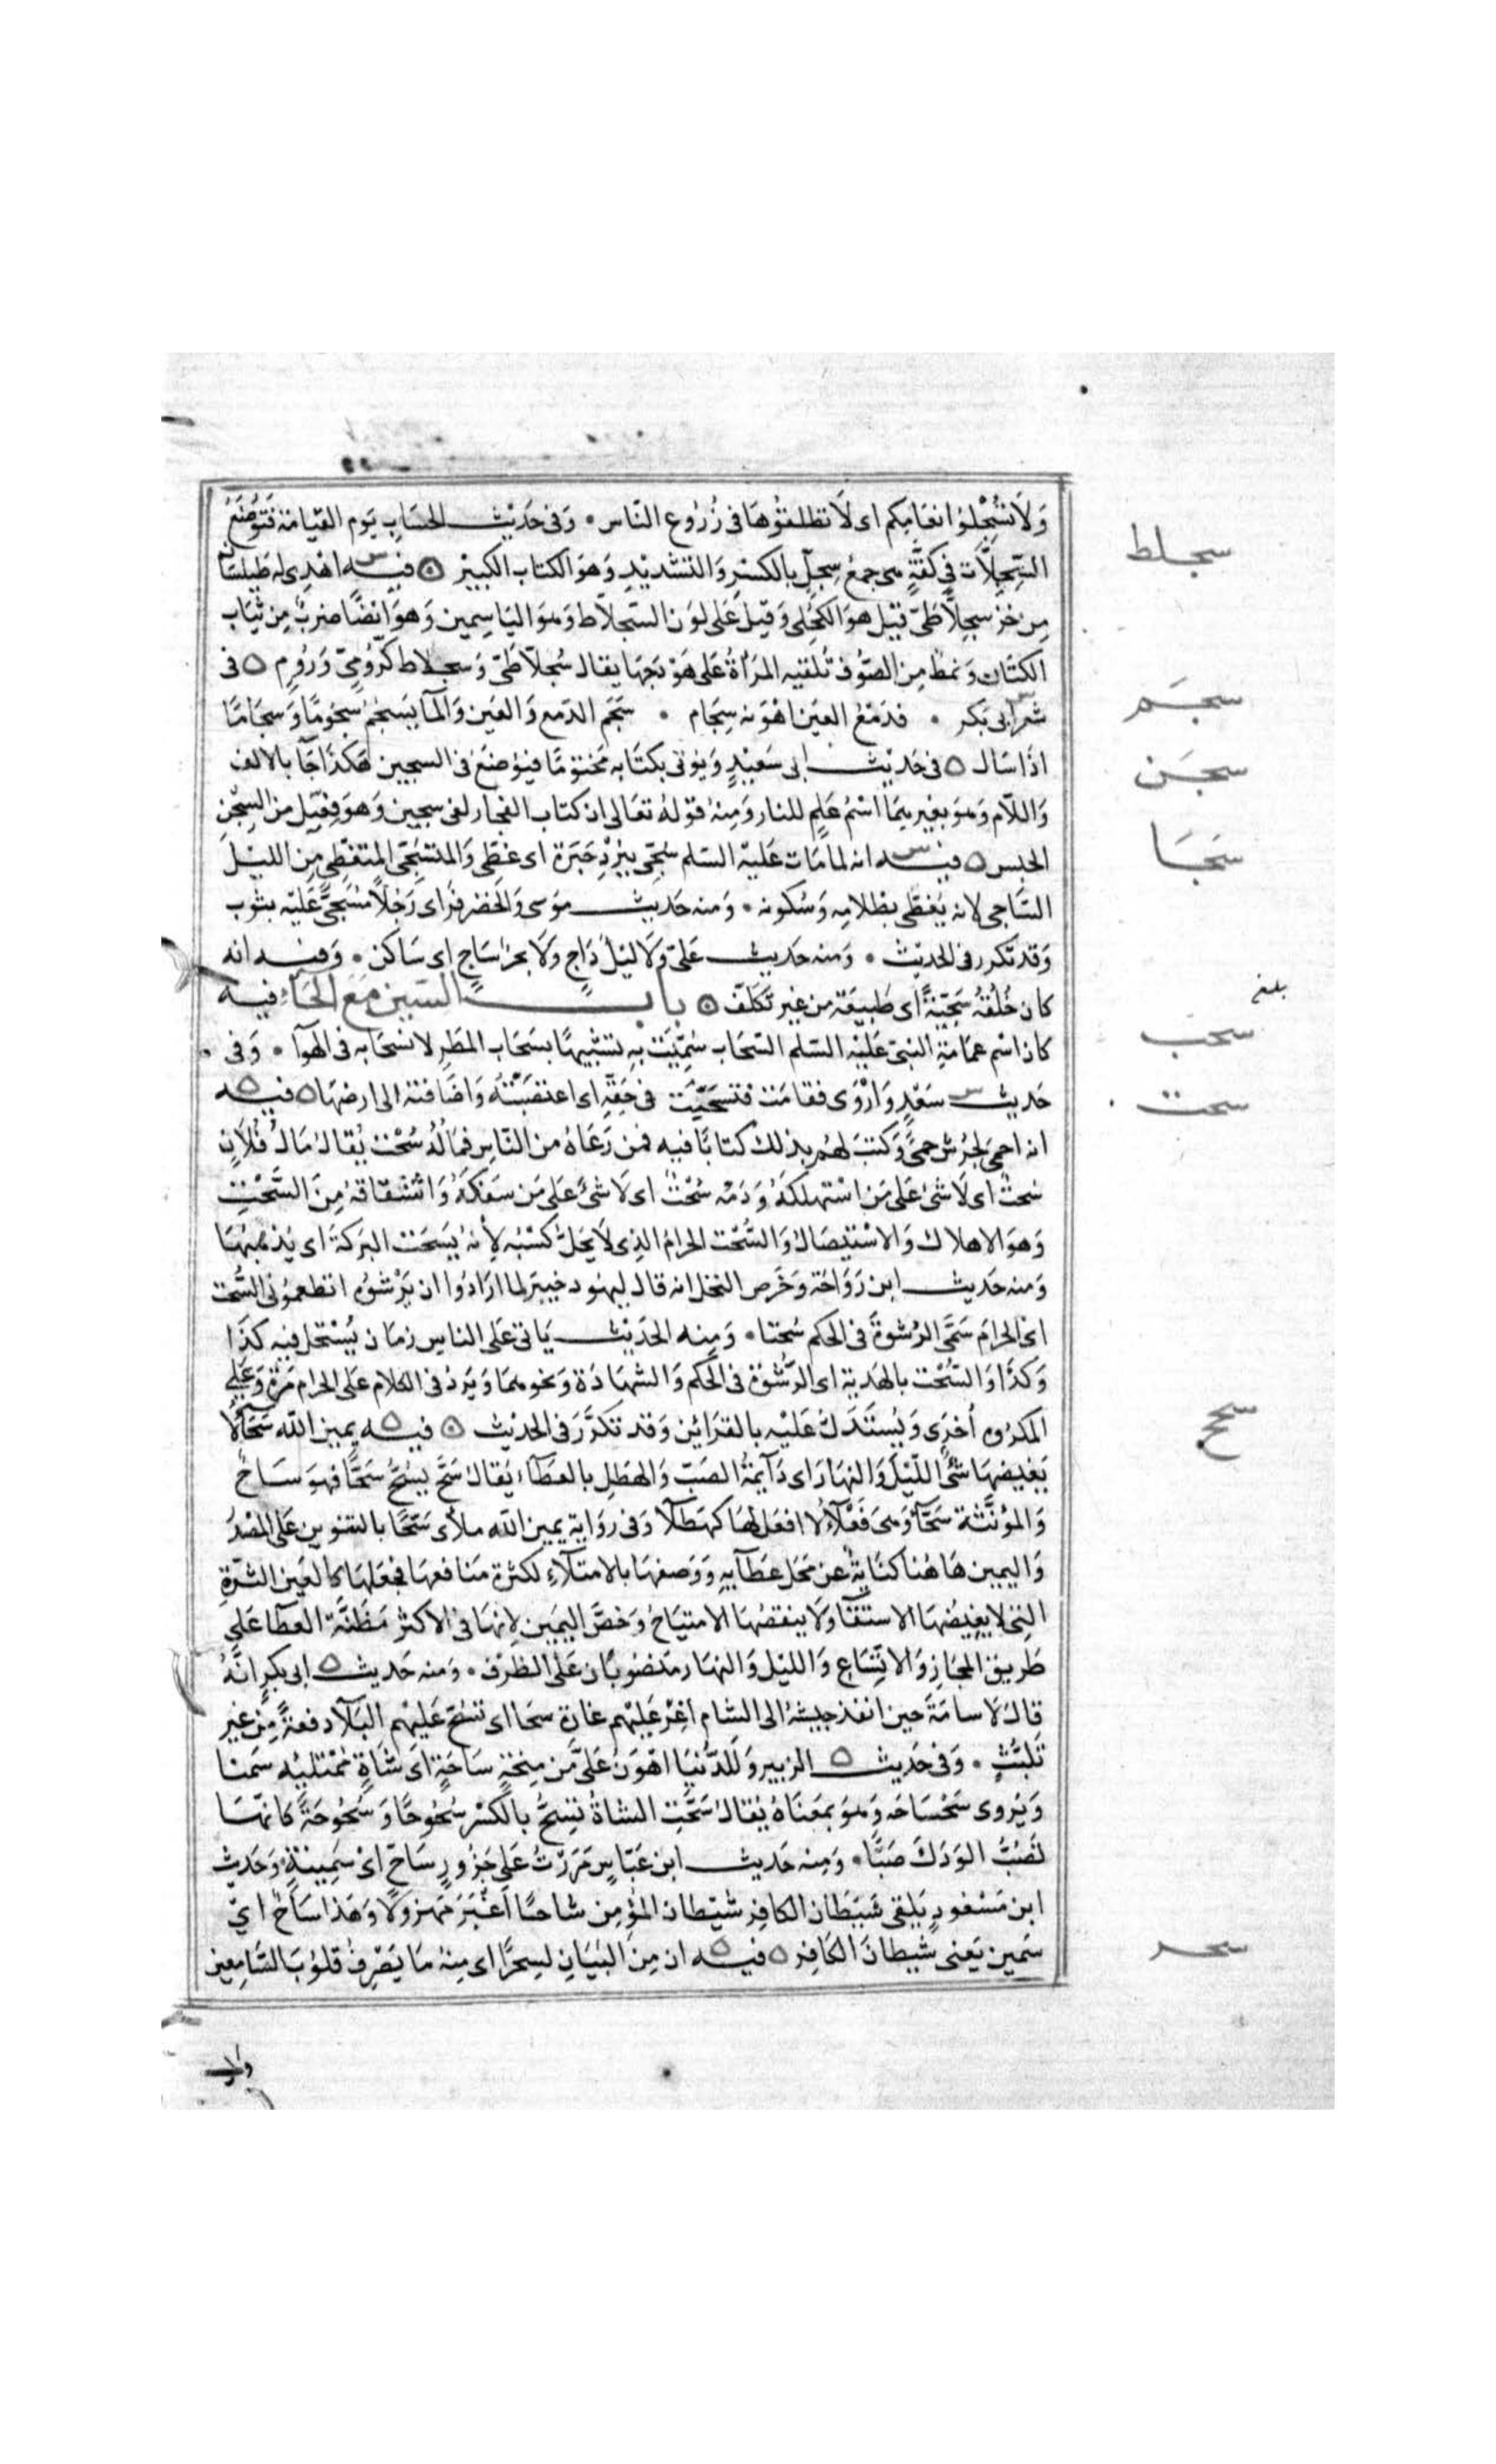 وَلَا تُسْجِلُوا انعَامكم اى لَا تطلقوُهَا فى زُرُوع النّاس • وَفى حَديْث الحسَاب يَوم القيَامَة فَتُوْضَعُ
سجلط
السِّجِلَّات فِى كفَّةٍ هى جمعُ سِجلّ بالكسْرِ وَالتشديْدِ وَهوَ الكتاب الكبيْر ۞ فيه اهْدِى له طَيْلسَانٌ
مِن خز سجِلَّاطىّ قيْل هوَ الكحْلى وَقيْل عَلى لوَن السّجلاّط وَهوَ اليَاسِمين وَهوَ ايضًا ضربٌ مِن ثيَاب
الكتَان وَنمطٌ مِن الصّوُف تُلقيه المرَاةُ عَلى هَوْدَجهَا يقال سُجلّاطىّ وَسجلاط كرُومىّ وَرُوم ۞ فى
سجم
شعر ابى بَكر • فدَمْعُ العيَن اهْوَنه سِجَام • سَجَم الدّمع وَالعيَن وَالمآ يَسجُمُ سُجوُمًا وَسجَامًا
سجن
اذَا سَال ۞ فى حَديْث ابى سَعيْدٍ وَيؤتى بكتَابه مَختوَمًا فيوُضَعُ فى السجين هكذَا جَآ بالالف
وَاللّام وَهوَ بغير هِمَا اسْمُ عَلمٍ للنار وَمِنهُ قوَلهُ تعَالى ان كتاب الفجار لفى سجين وَهوَ فِعّيل من السِّجْنِ
سَجَا
الحبس ۞ فيه انه لمامَات عَليْه السّلم سُجّى ببُرْدِ حَبَرَة اى غطّى وَالمتسَجّى المتغطّى مِن الليْل
السَّاجى لانه يُغطّى بظلامِه وَسُكونه • وَمنه حَديْث موسَى وَالخضر فرَاى رَجُلًا مُسَجًّى عَليْه بثوب
وَقد تكرر فى الحديْث • وَمنه حَديث عَلىّ وَلَا ليْل دَاجٍ وَلَا بحرٌ سَاجٍ اى سَاكن • وَفيه انه
بلغ
كان خُلُقهُ سَجِيّةً اى طَبيعَة من غير تَكلّف ۞ بابُ السّين مَعَ الحَاء فيه
سحب
كان اسْم عمَامَةِ النبىّ عَليْه السّلم السّحَاب سُمِّيَتْ به تشبيهًا بسَحَاب المَطَر لانسحَابه فى الهوَآ • وَفى
حَديث سَعْدٍ وَارْوَى فقامَت فتسحّبَت فى حَقِّهِ اى اغتصَبَتْهُ وَاضَافته الى ارضِهَا ۞ فيه
سحت
انه احمى لجُرَش حمىً وَكتب لهُم بذلك كتابًا فيه فمن رَعَاهُ من النّاس فمَالُهُ سُحْت يُقال مَال فُلَان
سُحتٌ اى لَا شىَ عَلى مَن اسْتهلكهُ وَدَمُه سُحْتٌ اى لَا شىَ عَلى مَن سَفكهُ وَاشتقاقهُ مِنَ السَّحْتِ
وَهوَ الاهلاك وَالاسْتيصَال وَالسُّحْت الحرامُ الذِى لَا يَحِلّ كسْبُه لِأنهُ يَسحَت البرَكة اى يُذْهِبُهَا
وَمنه حَديث ابن رَوَاحَة وَخرَص النخل انه قال ليهُود خيبر لما ارَادُوا ان يَرْشوُه اتطعموُنى السُّحت
اى الحرَام سَمَّى الرُشوةَ فى الحكم سُحتا • وَمِنه الحدَيْث يَاتى عَلى الناس زمَان يُسْتحَل فيه كذَا
وَكذَا وَالسُّحْت بالهَديَة اى الرِّشْوَة فى الحُكم وَالشهَادَة وَنحوهمَا وَيَرد فى الكلام عَلى الحرام مَرةً وَعَلى
المكرُوه أخرَى وَيُستَدَلّ عَليْه بالقرَائن وَقد تكرَّرَ فى الحديْث ۞ فيه يمين الله سَحَّآ لَا
سحح
يَغيضهَا شىٌ اللّيْلَ وَالنهَارَ اى دَآيمَةُ الصَبّ وَالهَطل بالعَطآء يُقال سَحّ يَسُحُّ سَحًّا فهوَ سَاحّ
وَالمؤنَّثة سَحَّآ وَهىَ فَعْلَآ لَا افعَل لهَا كهَطْلَآ وَفى روَايةٍ يمين الله ملأى سَحًّا بالتنوين عَلى المصْدَر
وَاليمين هَاهُنا كنَايةٌ عن مَحَل عَطَآيهِ وَوَصفهَا بالامتلَآءِ لكثرة مَنافعهَا فجَعَلهَا كالعَين الثرّةِ
التى لا يغيضُهَا الاستقا وَلَا ينقصُهَا الامتيَاحُ وَخصَّ اليَمين لِانهَا فى الاكثر مَظنَّة العطَآ عَلى
طَريق المجَاز وَالاتِّسَاع وَالليْل وَالنهَار منصُوبَان عَلى الظرْف • وَمنه حَديث ابى بكرٍ انَّهُ
قال لَاسامَةَ حين انفذ جيشهُ الى الشام اغِرْ عَليْهم غارَة سحَا اى تسُحّ عَليْهم البَلآ دفعةً مِن غير
تَلبُّثٍ • وَفى حَديث الزبير وَللدُّنيَا اهْوَن عَلَىّ مَن مِنحةٍ سَاحّةٍ اى شَاةٍ ممْتلئة سَمنا
وَيُروى سَحْسَاحَه وَهوَ بمَعنَاهُ يُقال سَحَّتِ الشاةُ تسِحُّ بالكسْر سُحُوحًا وَسُحُوحَةً كانّهَا
تَصُبُّ الوَدَكَ صَبًّا • وَمِنه حَديث ابن عَبّاسٍ مَرَرْتُ عَلى جَزُورٍ سَاحٍّ اىْ سَمِينةٍ وَحَديث
ابن مَسْعُودٍ يَلقى شَيْطَان الكافِر شَيْطان المؤمِن شاحبًا أغْبَرَ مَهزولًا وَهَذا سَاحٌّ اىْ
سَمين يَعنى شَيطانَ الكَافِر ۞ فيه ان مِنَ البَيَانِ لسِحرًا اى مِنهُ مَا يَصْرِفُ قلوُبَ السَّامِعين
سحر
وان